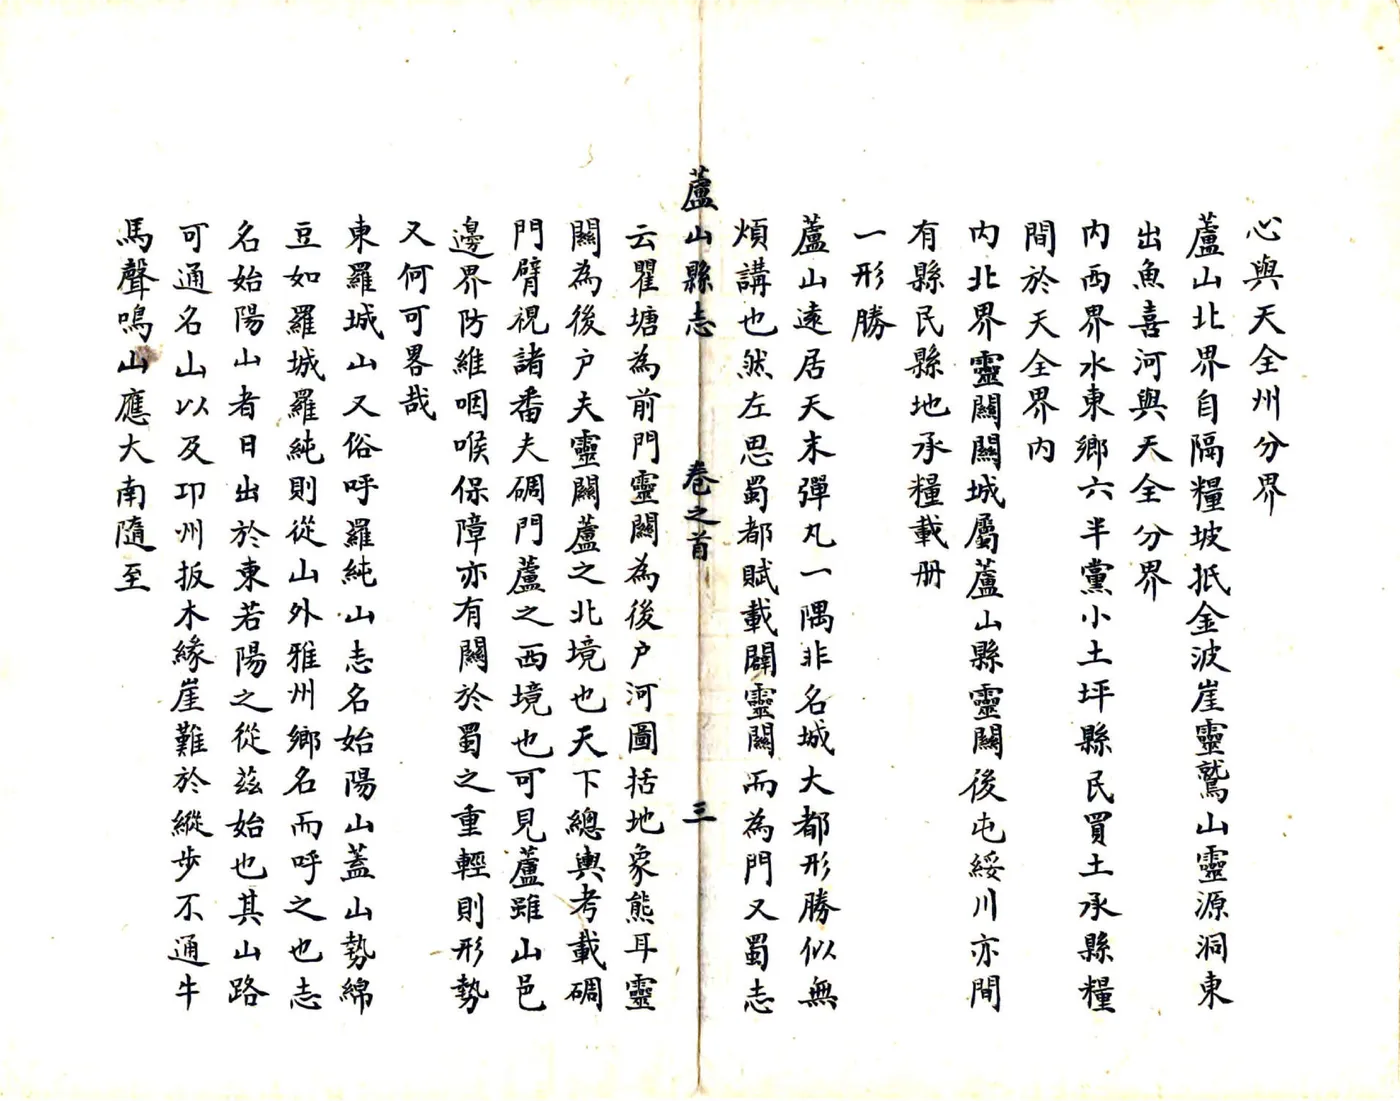 心與天全州分界
蘆山北界自隔糧坡抵金波崖靈鷲山靈源洞東
出魚喜河與天全分界
內西界水東鄉六半黨小土坪縣民買土承縣糧
間於天全界內
內北界靈關關城屬蘆山縣靈關後屯綏川亦間
有縣民縣地承糧載册
一形勝
蘆山遠居天末彈丸一隅非名城大都形勝似無
煩講也然左思蜀都賦載闢靈關而為門又蜀志
蘆山縣志 卷之首 三
云瞿塘為前門靈關為後户河圖括地象熊耳靈
關為後户夫靈關蘆之北境也天下總輿考載碉
門臂視諸番夫碉門蘆之西境也可見蘆雖山邑
邊界防維咽喉保障亦有關於蜀之重輕則形勢
又何可畧哉
東羅城山又俗呼羅純山志名始陽山蓋山勢綿
豆如羅城羅純則從山外雅州鄉名而呼之也志
名始陽山者日出於東若陽之從茲始也其山路
可通名山以及邛州扳木緣崖難於縱步不通牛
馬聲鳴山應大南隨至